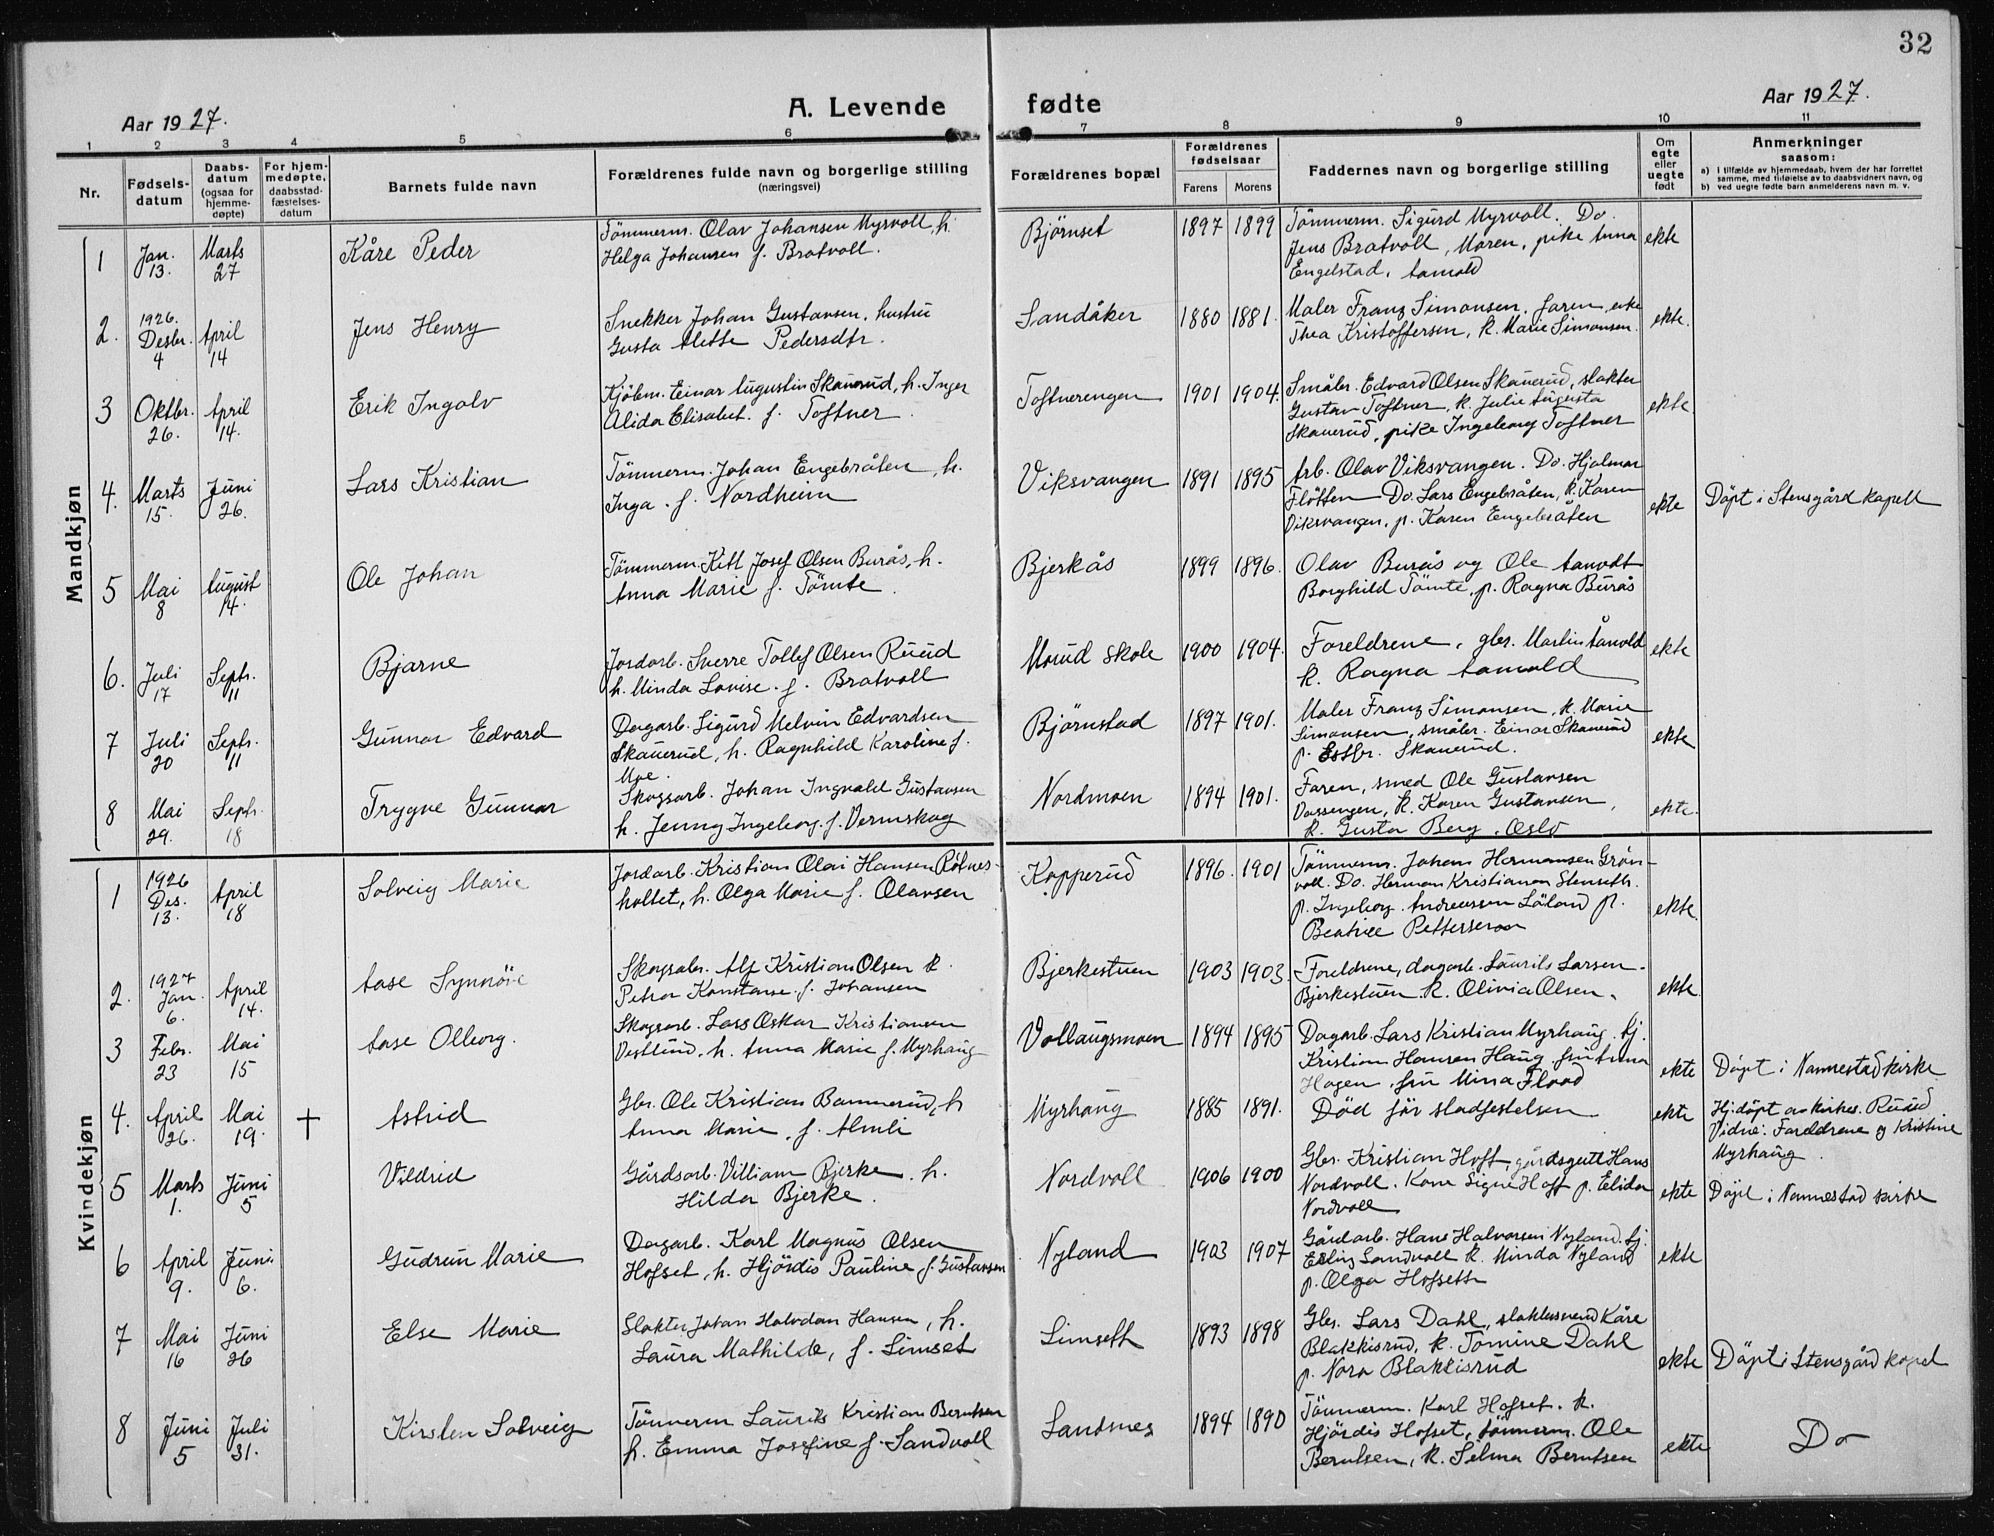 32
Aar 1927.
A. Levende fødte
Aar 1927.
1 2 3 4 5 6 7 8 9 10 11
Nr.
Fødsels-
datum
Daabs-
datum
(ogsaa for
hjemme-
døpte)
For hjem-
medøpte,
daabsstad-
fæstelses-
datum
Barnets fulde navn
Forældrenes fulde navn og borgerlige stilling
(næringsvei)
Forældrenes bopæl
Forældrenes
fødselsaar
Farens Morens
Faddernes navn og borgerlige stilling
Om
egte
eller
uegte
født
Anmerkninger
saasom:
a) i tilfælde av hjemmedaab, hvem der har forrettet
samme, med tilføielse av to daabsvidners navn, og
b) ved uegte fødte barn anmelderens navn m. v.
Mandkjøn
1 Jan. 13. Marts 27 Kåre Peder
Tömmerm. Olav Johansen Myrvoll, h.
Helga Johansen f. Bratvoll.
Bjørnset 1897 1899
Tömmerm. Sigurd Myrvoll. Do.
Jens Bratvoll, Maren, pike Anna
Engelstad, Aamold
ekte
2. 1926. Desbr. 4 April 14 Jens Henry
Snekker Johan Gustavsen, hustru
Gusta Mette Pedersdtr.
Sandåker 1880 1881.
Maler Franz Simonsen, faren, enke
Thea Kristoffersen, k. Marie Simonsen.
ekte.
3 Oktbr. 26. April 14. Erik Ingolv
Kjöbm. Einar Augustin Skauerud, h. Inger
Alida Elisabet. f. Toftner.
Toftnerengen 1901 1904.
Småbr. Edvard Olsen Skauerud, slakter
Gustav Toftner, k. Julie Augusta
Skauerud, pike Ingeborg Toftner
ekte
4. Marts 15. Juni 26. Lars Kristian
Tömmerm. Johan Engebråten, h.
Inga. f. Nordheim
Viksvangen 1891 1895
Arb. Olav Viksvangen. Do. Hjalmar
Flötten Do. Lars Engebråten, k. Karen
Viksvangen, p. Karen Engebråten
ekte Döpt i Stensgård kapell
5 Mai 8 August 14. Ole Johan
Tömmerm. Ketl Josef Olsen Burås, h.
Anna Marie f. Tömte.
Bjerkås 1899 1896.
Olav Burås og Ole Aanodt
Borghild Tömte, p. Ragna Burås
6. Juli 17 Septr. 11 Bjarne
Jordarb. Sverre Tollef Olsen Ruud
h. Minda Lovise. f. Bratvoll
Morud skole 1900 1904.
Foreldrene, gbr. Martin Aanold
k. Ragna Aamold
ekte
7 Juli 20 Septr. 11 Gunnar Edvard
Dagarb. Sigurd Melvin Edvardsen
Skauerud, h. Ragnhild Karoline f.
Moe.
Björnstad 1897 1901.
Maler Franz Simonsen, k. Marie
Simonsen, småbr. Einar Skauerud
p. Ester Skauerud.
ekte
8 Mai 29. Septr. 18 Trygve Gunnar
Skogsarb. Johan Ingvald Gustavsen
h. Jenny Ingeborg f. Vermskog
Nordmoen 1894 1901.
Faren, smed Ole Gustavsen
Vassengen, k. Karen Gustavsen,
k. Gusta Berg, Oslo
ekte.
Kvindekjøn
1 1926 Des. 13. April 18 Solveig Marie
Jordarb. Kristian Olai Hansen Rötnes-
holtet, h. Olga Marie f. Olavsen
Kopperud 1896. 1901
Tömmerm. Johan Hermansen Grön-
voll. Do. Herman Kristiansen Stenseth.
p. Ingeborg Andreassen Löland p.
Beatrice Pettersen
ekte.
2. 1927 Jan. 6. April 14. Aase Synnöve
Skogsabr. Alf Kristian Olsen k.
Petra Konstanse f. Johansen
Bjerkestuen 1903 1903.
Foreldrene, dagarb. Laurits Larsen
Bjerkestuen k. Olivia Olsen.
ekte.
3 Febr. 23 Mai 15 Aase Olborg.
Skogsarb. Lars Oskar Kristiansen
Vestlund, h. Anna Marie f. Myrhaug
Vollaugsmoen 1894 1895
Dagarb. Lars Kristian Myrhaug. tj.
Kristian Hansen Haug, fru Anna
Hagen, fru Mina Flood
ekte Döpt i Nannestad kirke
4. April 26. Mai 19. + Astrid
Gbr. Ole Kristian Bannerud, h
Anna Marie, f. Almli
Myrhaug 1885 1891.
Död för stadfestelsen
ekte Hj.döpt av kirkes. Ruud
Vidne: Foreldrene og Kristine
Myrhaug.
5 Marts 1. Juni 5 Vildrid
Gårdsarb. Villiam Bjerke. h.
Hilda Bjerke.
Nordvoll 1906 1900
Gbr. Kristian Hoff, gårdsgutt Hans
Nordvoll. Kone Signe Hoff p. Elida
Nordvoll
ekte Döpt i Nannestad kirke
6 April 9. Juni 6. Gudrun Marie
Dagarb. Karl Magnus Olsen
Hofset, h. Hjördis Pauline f. Gustavsen
Nyland 1903 1907
Gårdarb. Hans Halvorsen Nyland. tj.
Erling Sandvoll k. Minda Nyland
p. Olga Hofseth
ekte
7 Mai 16 Juni 26 Else Marie
Slakter Johan Halvdan Hansen, h.
Laura Mathilde, f. Limset
Limseth 1893 1898
Gbr. Lars Dahl, slaktersvend Kåre
Blakkisrud, k. Tomine Dahl
p. Nora Blakkisrud
ekte Döpt i Stensgård kapel
8 Juni 5 Juli 31. Kirsten Solveig
Tömmerm Laurits Kristian Berntsen
h. Emma Josefine f. Sandvoll
Sandsnes 1894 1890
Tömmerm. Karl Hofset. k.
Hjördis Hofset, tömmerm. Ole
Berntsen, k. Selma Berntsen
ekte Do